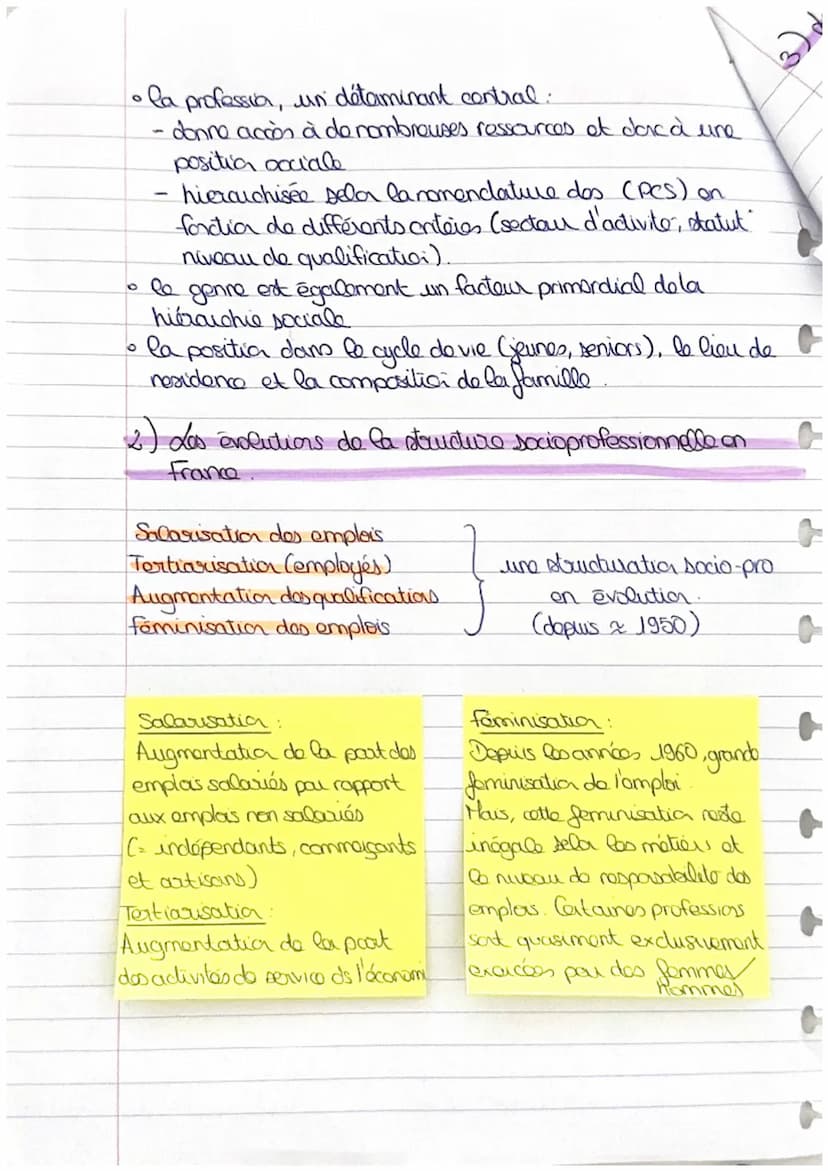 3)
• la profession, un déterminant central :
- donne accès à de nombreuses ressources et donc à une
position sociale
- hiérarchisée selon la nomenclature des (PCS) en
fonction de différents critères (secteur d'activité, statut
niveau de qualification).
• le genre est également un facteur primordial de la
hiérarchie sociale
• la position dans le cycle de vie (jeunes, seniors), le lieu de
residence et la composition de la famille.
2) Les évolutions de la structure socioprofessionnelle en
France.
Salarisation des emplois
Tertiarisation (employés)
Augmentation des qualifications
féminisation des emplois
une structuration socio-pro
en évolution.
(depuis ≈ 1950)
Salarisation :
Augmentation de la part des
emplois salariés par rapport
aux emplois non salariés
(= indépendants, commerçants
et artisans)
Tertiarisation :
Augmentation de la part
des activités de service ds l'économi
féminisation :
Depuis les années 1960, grande
féminisation de l'emploi.
Mais, cette feminisation reste
inégale selon les métiers et
le niveau de responsabilité des
emplois. Certaines professions
sont quasiment exclusivement
exercées par des femmes/
hommes